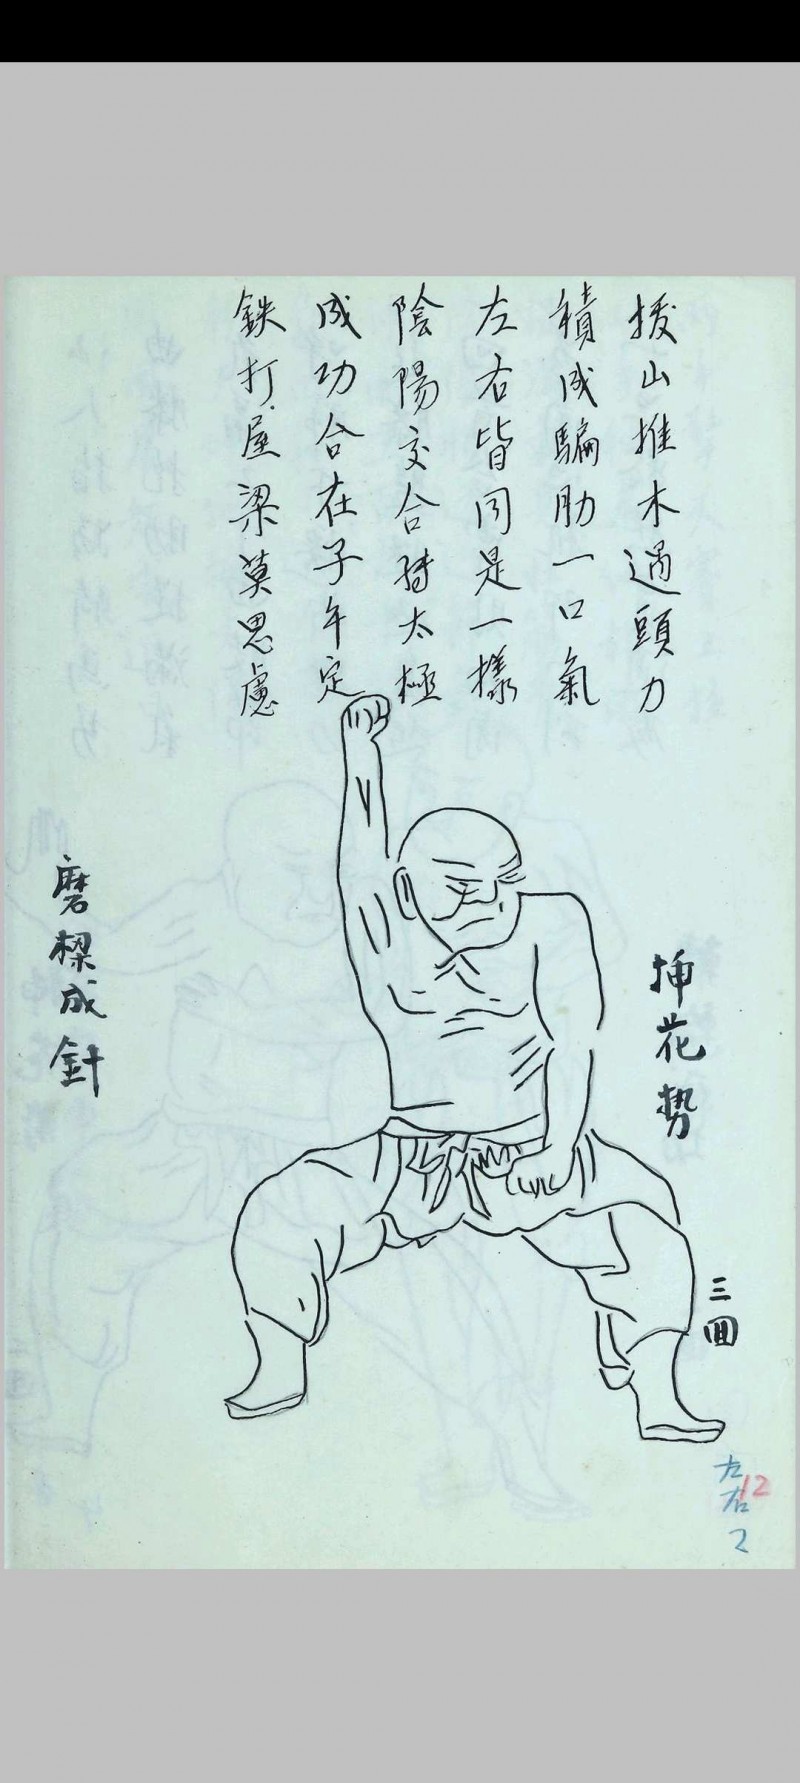 拔山推木過頭力
積成騙肋一口氣
左右皆同是一樣
陰陽交合轉太極
成功合在子午定
鉄打屋梁莫思慮
插花势
三囬
磨樑成針
左右
12